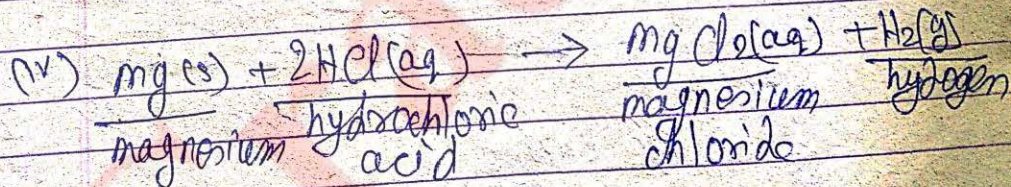 (iv) mg(s) + 2HCl(aq) → mgCl2(aq) + H2(g)
magnesium hydrochloric acid magnesium chloride hydrogen